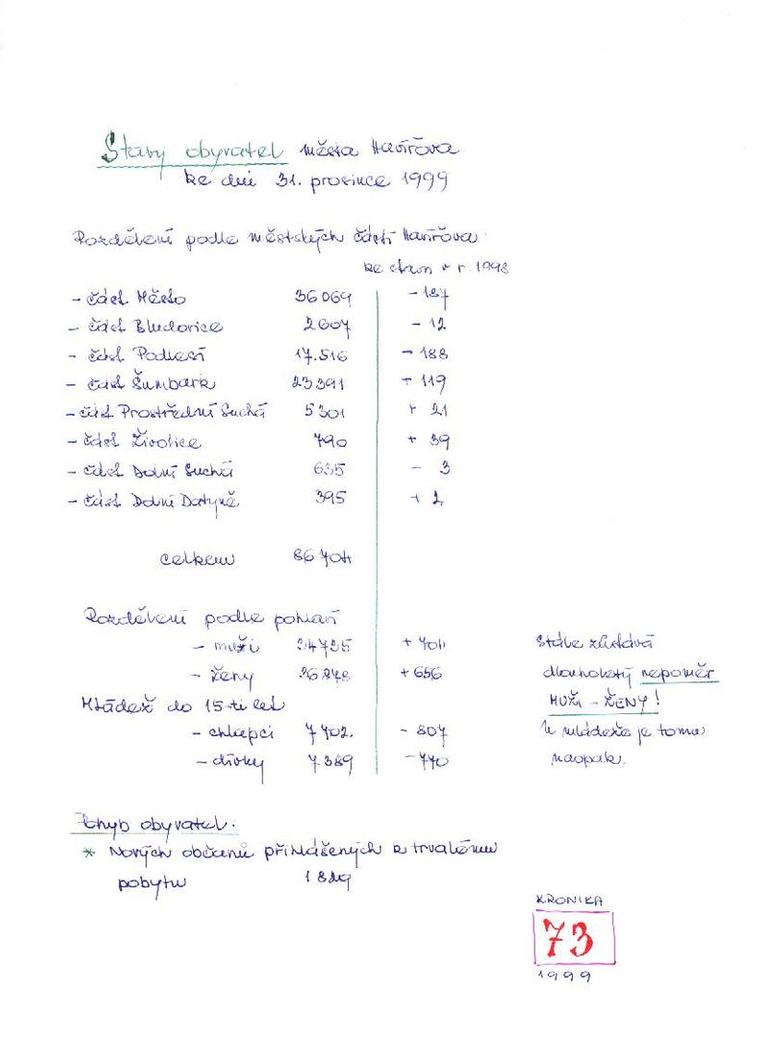 Stavy obyvatel města Havířova
ke dni 31. prosince 1999
Rozdělení podle městských částí Havířova
ke stavu v r. 1998
- část Město 36 069 - 187
- část Bludovice 2 607 - 12
- část Podlesí 17.516 - 188
- část Šumbark 23 391 + 119
- část Prostřední Suchá 5 301 + 21
- část Životice 790 + 39
- část Dolní Suchá 635 - 3
- část Dolní Datyně 395 + 2
celkem 86 704
Rozdělení podle pohlaví
- muži 34735 + 704 Stále zůstává
- ženy 36 878 + 656 dlouholetý nepoměr
Mládež do 15-ti let MUŽI - ŽENY!
- chlapci 7 702 - 807 U mládeže je tomu
- dívky 7 389 - 770 naopak.
Pohyb obyvatel.
* Nových občanů přihlášených k trvalému
pobytu 1 829
KRONIKA
73
1999